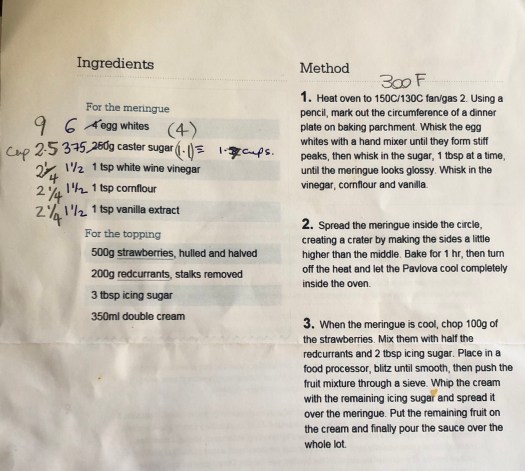 Ingredients
For the meringue
9 6 4 egg whites (4)
Cup 2.5 375 250g caster sugar (1.1) = cups.
2 1/4 1 1/2 1 tsp white wine vinegar
2 1/4 1 1/2 1 tsp cornflour
2 1/4 1 1/2 1 tsp vanilla extract
For the topping
500g strawberries, hulled and halved
200g redcurrants, stalks removed
3 tbsp icing sugar
350ml double cream
Method
300 F
1. Heat oven to 150C/130C fan/gas 2. Using a
pencil, mark out the circumference of a dinner
plate on baking parchment. Whisk the egg
whites with a hand mixer until they form stiff
peaks, then whisk in the sugar, 1 tbsp at a time,
until the meringue looks glossy. Whisk in the
vinegar, cornflour and vanilla.
2. Spread the meringue inside the circle,
creating a crater by making the sides a little
higher than the middle. Bake for 1 hr, then turn
off the heat and let the Pavlova cool completely
inside the oven.
3. When the meringue is cool, chop 100g of
the strawberries. Mix them with half the
redcurrants and 2 tbsp icing sugar. Place in a
food processor, blitz until smooth, then push the
fruit mixture through a sieve. Whip the cream
with the remaining icing sugar and spread it
over the meringue. Put the remaining fruit on
the cream and finally pour the sauce over the
whole lot.